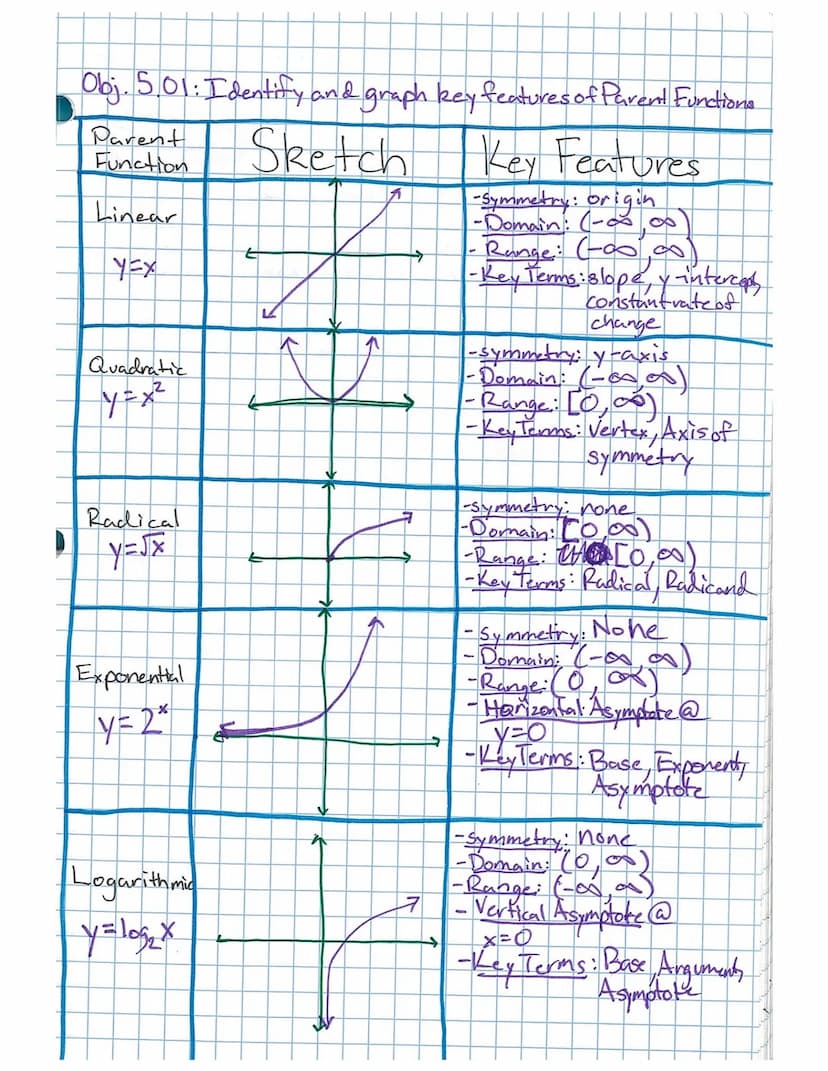 Obj. 5.01: Identify and graph key features of Parent Functions
Parent
Function
Sketch
Key Features
Linear
y=x
-Symmetry: origin
-Domain: (-∞,∞)
-Range: (-∞,∞)
-Key Terms: slope, y-intercept,
constant rate of
change
Quadratic
y=x²
-symmetry: y-axis
-Domain: (-∞,∞)
-Range: [0,∞)
-Key Terms: Vertex, Axis of
symmetry
Radical
y=√x
-symmetry: none
-Domain: [0,∞)
-Range: [0,∞)
-Key Terms: Radical, Radicand
Exponential
y=2ˣ
-Symmetry: None
-Domain: (-∞,∞)
-Range: (0,∞)
-Horizontal Asymptote @
y=0
-Key Terms: Base, Exponent,
Asymptote
Logarithmic
y=log₂x
-Symmetry: none
-Domain: (0,∞)
-Range: (-∞,∞)
-Vertical Asymptote @
x=0
-Key Terms: Base, Argument,
Asymptote